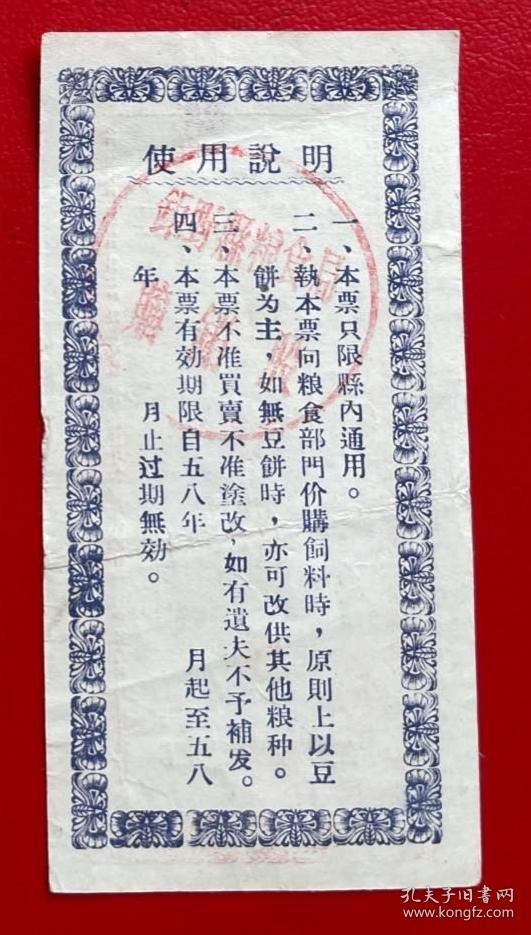 使用說明
一、本票只限縣內通用。
二、執本票向粮食部門价購飼料時，原則上以豆
餅为主，如無豆餅時，亦可改供其他粮种。
三、本票不准買賣不准塗改，如有遺夫不予補发。
四、本票有効期限自五八年　　月起至五八
年　　月止过期無効。
縣粮食局
孔夫子旧书网
kongfz.com